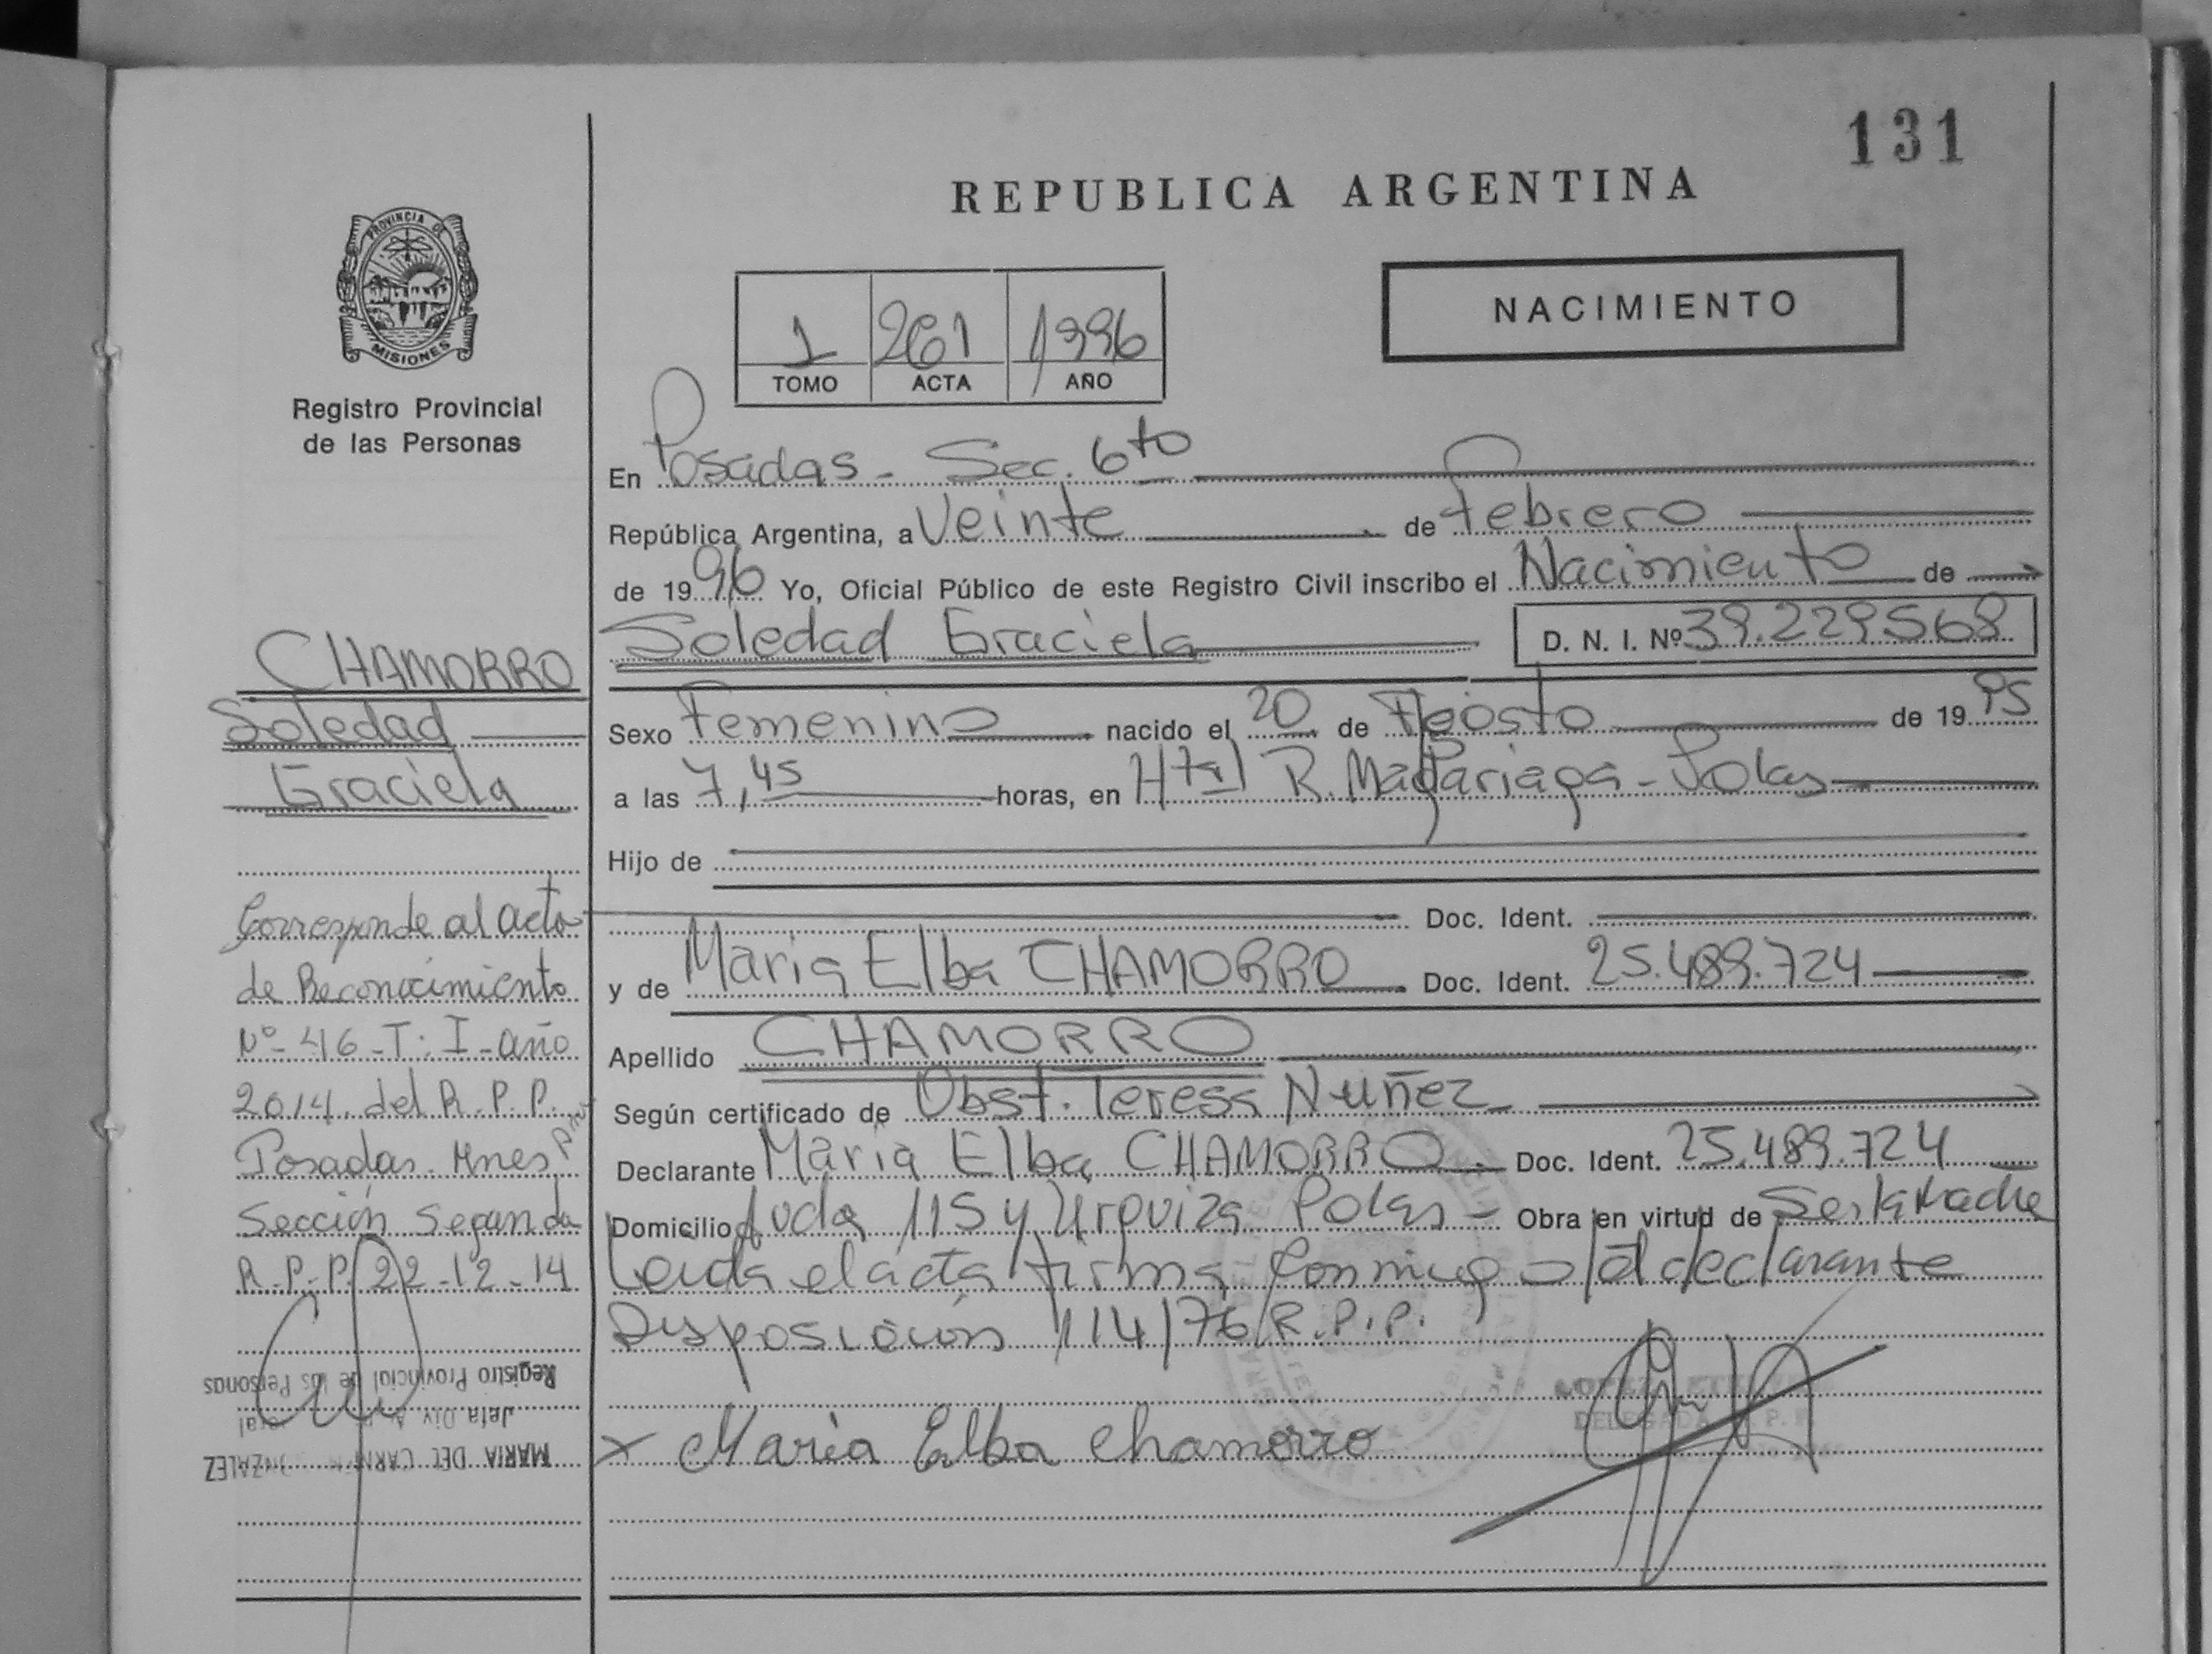 131
REPUBLICA ARGENTINA
NACIMIENTO
PROVINCIA DE
MISIONES
Registro Provincial
de las Personas
1 261 1996
TOMO ACTA AÑO
En Posadas - Sec. 6to
República Argentina, a Veinte de febrero
de 1996 Yo, Oficial Público de este Registro Civil inscribo el Nacimiento de
Soledad Graciela D. N. I. Nº 39.229.568
Sexo Femenino nacido el 20 de Agosto de 1995
a las 7,45 horas, en Htal R. Madariaga - Pdas
Hijo de
Doc. Ident.
y de Maria Elba CHAMORRO Doc. Ident. 25.489.724
Apellido CHAMORRO
Según certificado de Obst. Teresa Nuñez
Declarante Maria Elba CHAMORRO Doc. Ident. 25.489.724
Domicilio Avda 115 y Urquiza Pdas - Obra en virtud de Ser la Madre
Leida el acta firma conmigo el declarante
Disposición 114/76 R.P.P.
x Maria Elba Chamorro
DELEGADA R. P. P.
CHAMORRO
Soledad
Graciela
Corresponde al acta
de Reconocimiento
Nº 46 - T: I - año
2014 del R.P.P.
Posadas Mnes
Sección Segunda
R.P.P. 22-12-14
MARIA DEL CARMEN GONZALEZ
Jefa Div.
Registro Provincial de las Personas